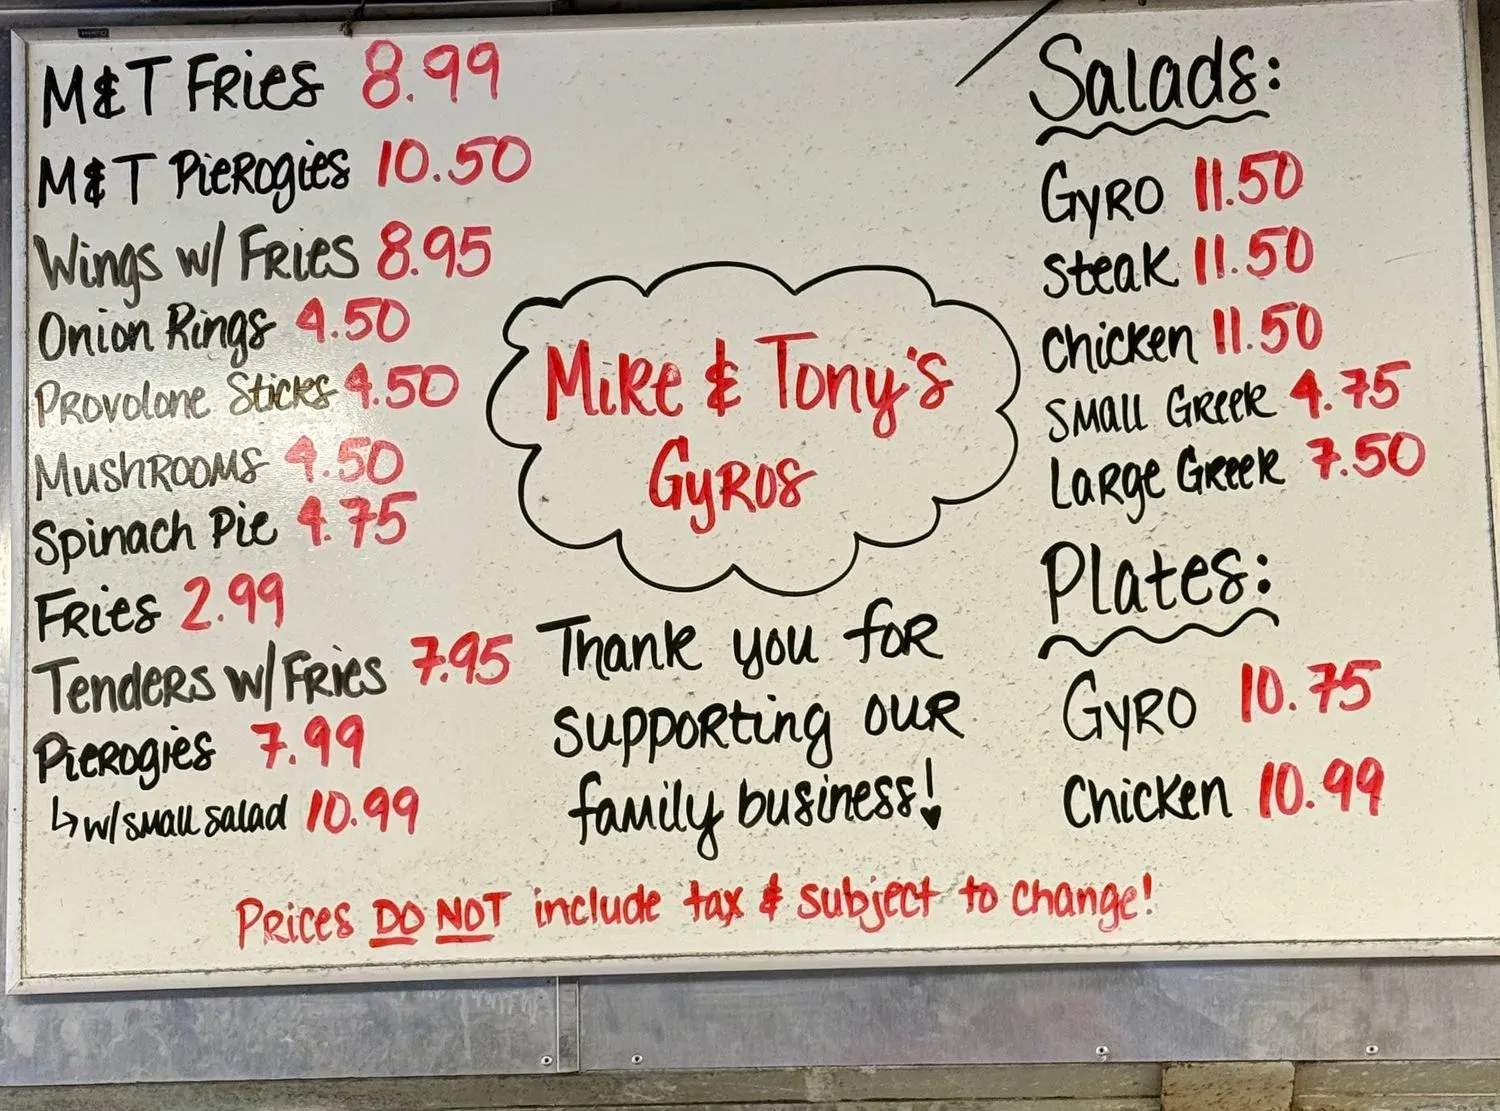 M&T Fries 8.99
M&T Pierogies 10.50
Wings w/ Fries 8.95
Onion Rings 4.50
Provolone Sticks 4.50
Mushrooms 4.50
Spinach Pie 4.75
Fries 2.99
Tenders w/ Fries 7.95
Pierogies 7.99
↳ w/ small salad 10.99
Mike & Tony's
Gyros
Thank you for
supporting our
family business!
Salads:
Gyro 11.50
Steak 11.50
Chicken 11.50
Small Greek 4.75
Large Greek 7.50
Plates:
Gyro 10.75
Chicken 10.99
Prices DO NOT include tax & subject to change!